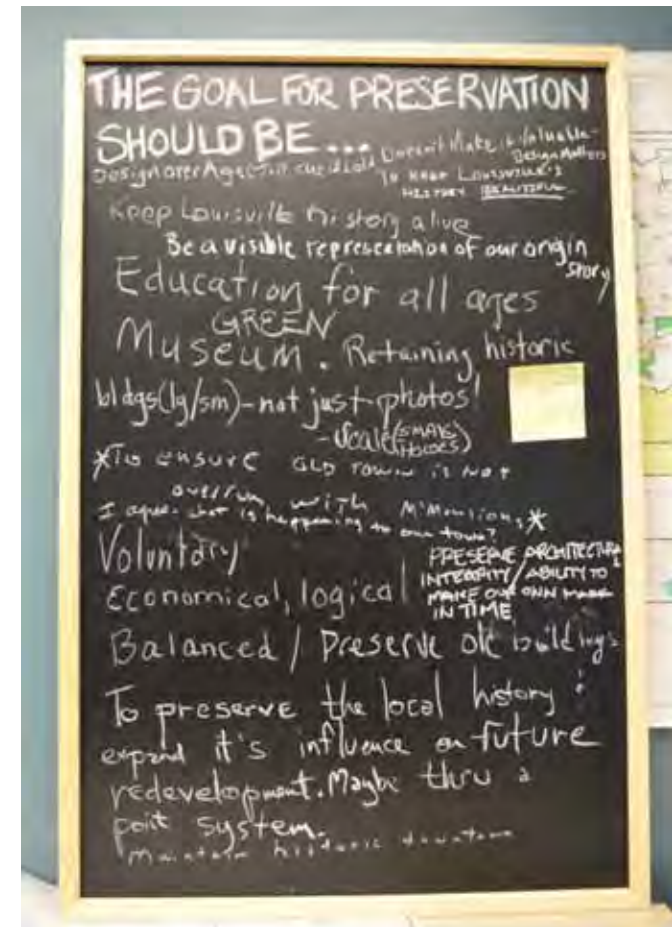 THE GOAL FOR PRESERVATION
SHOULD BE...
Design over Age Just cuz it's old Doesn't Make it Valuable -
Design Matters
To Keep Louisville's
History BEAUTIFUL
Keep Louisville history alive
Be a visible representation of our origin
story
Education for all ages
GREEN
Museum. Retaining historic
bldgs (lg/sm) - not just photos!
- Scale (SMALL HOUSES)
*To ensure OLD TOWN is NOT
overrun with M'Mansions*
I agree - what is happening to our town?
Voluntary
Economical, logical
PRESERVE ARCHITECTURAL
INTEGRITY / ABILITY TO
MAKE OUR OWN MARK
IN TIME
Balanced / Preserve old buildings
To preserve the local history &
expand it's influence on future
redevelopment. Maybe thru a
point system.
Maintain historic downtown